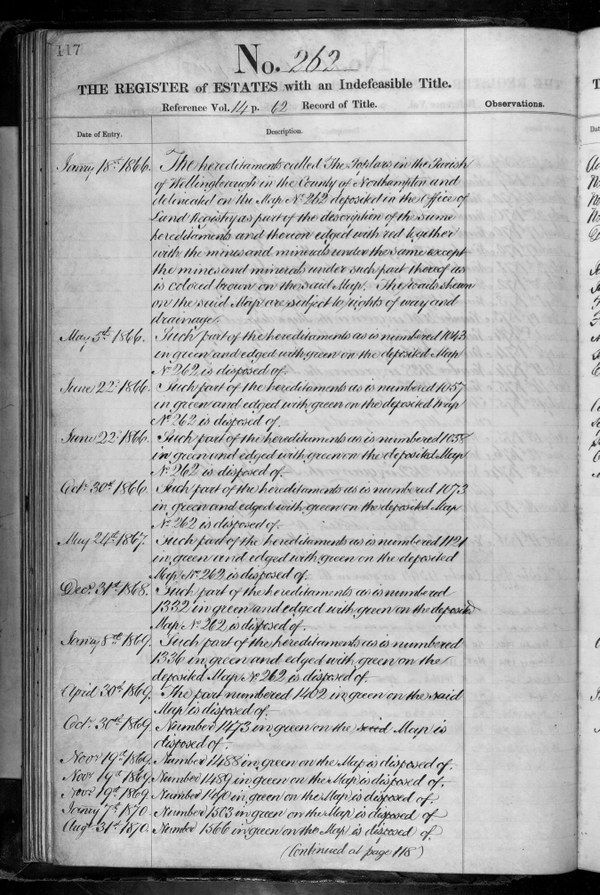 117
No. 262
THE REGISTER of ESTATES with an Indefeasible Title.
Reference Vol. 14 p. 62 Record of Title.
Observations.
Date of Entry.
Description.
Janry 18th 1866. The hereditaments called The Poplars in the Parish
of Wellingborough in the County of Northampton and
delineated on the Map No 262 deposited in the Office of
Land Registry as part of the description of the same
hereditaments and thereon edged with red together
with the mines and minerals under the same except
the mines and minerals under such part thereof as
is colored brown on the said Map. The roads shewn
on the said Map are subject to rights of way and
drainage.
May 5th 1866. Such part of the hereditaments as is numbered 1043
in green and edged with green on the deposited Map
No 262 is disposed of.
June 22d 1866. Such part of the hereditaments as is numbered 1057
in green and edged with green on the deposited Map
No 262 is disposed of.
June 22d 1866. Such part of the hereditaments as is numbered 1058
in green and edged with green on the deposited Map
No 262 is disposed of.
Octr 30th 1866. Such part of the hereditaments as is numbered 1073
in green and edged with green on the deposited Map
No 262 is disposed of.
May 24th 1867. Such part of the hereditaments as is numbered 1121
in green and edged with green on the deposited
Map No 262 is disposed of.
Decr 31st 1868. Such part of the hereditaments as is numbered
1332 in green and edged with green on the deposited
Map No 262 is disposed of.
Janry 8th 1869. Such part of the hereditaments as is numbered
1336 in green and edged with green on the
deposited Map No 262 is disposed of.
April 30th 1869. The part numbered 1402 in green on the said
Map is disposed of.
Octr 30th 1869. Number 1473 in green on the said Map is
disposed of.
Novr 19th 1869. Number 1488 in green on the Map is disposed of.
Novr 19th 1869. Number 1489 in green on the Map is disposed of.
Novr 19th 1869. Number 1490 in green on the Map is disposed of.
Janry 7th 1870. Number 1503 in green on the Map is disposed of.
Augt 31st 1870. Number 1566 in green on the Map is disposed of.
(Continued at page 118)